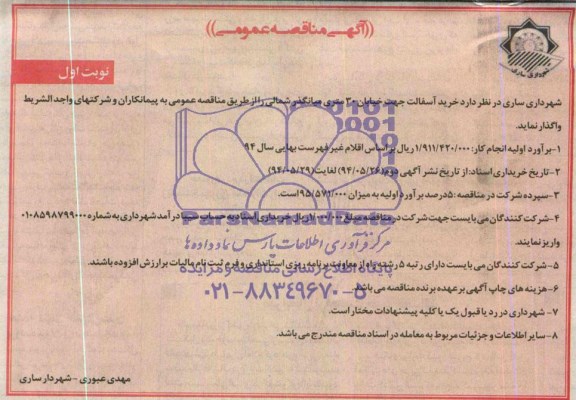 ((آگهی مناقصه عمومی))
شهرداری ساری
نوبت اول
شهرداری ساری در نظر دارد خرید آسفالت جهت خیابان ۳۰ متری میانگذر شمالی را از طریق مناقصه عمومی به پیمانکاران و شرکتهای واجد الشرایط
واگذار نماید.
۱-برآورد اولیه انجام کار: ۱/۹۱۱/۴۲۰/۰۰۰ ریال بر اساس اقلام غیر فهرست بهایی سال ۹۴
۲- تاریخ خریداری اسناد: از تاریخ نشر آگهی دوم (۹۴/۰۵/۲۶) لغایت (۹۴/۰۵/۲۹)
۳- سپرده شرکت در مناقصه: ۵درصد برآورد اولیه به میزان ۹۵/۵۷۱/۰۰۰ است.
۴- شرکت کنندگان می بایست جهت شرکت در مناقصه مبلغ ریال خریداری اسناد به حساب درآمد شهرداری به شماره ۰۱۰۸۵۹۸۷۹۹۰۰۰
واریز نمایند.
۵- شرکت کنندگان می بایست دارای رتبه ۵ رشته راه از معاونت برنامه ریزی استانداری و فرم ثبت نام مالیات بر ارزش افزوده باشند.
۶- هزینه های چاپ آگهی بر عهده برنده مناقصه می باشد.
۷- شهرداری در رد یا قبول یک یا کلیه پیشنهادات مختار است.
۸- سایر اطلاعات و جزئیات مربوط به معامله در اسناد مناقصه مندرج می باشد.
مهدی عبوری - شهردار ساری
ParsNamadData
مرکز فرآوری اطلاعات پارس نماد داده ها
پایگاه اطلاع رسانی مناقصه و مزایده
۰۲۱-۸۸۳۴۹۶۷۰-۵